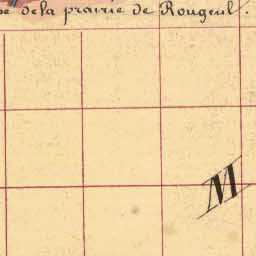 de la prairie de Rougeul.
M